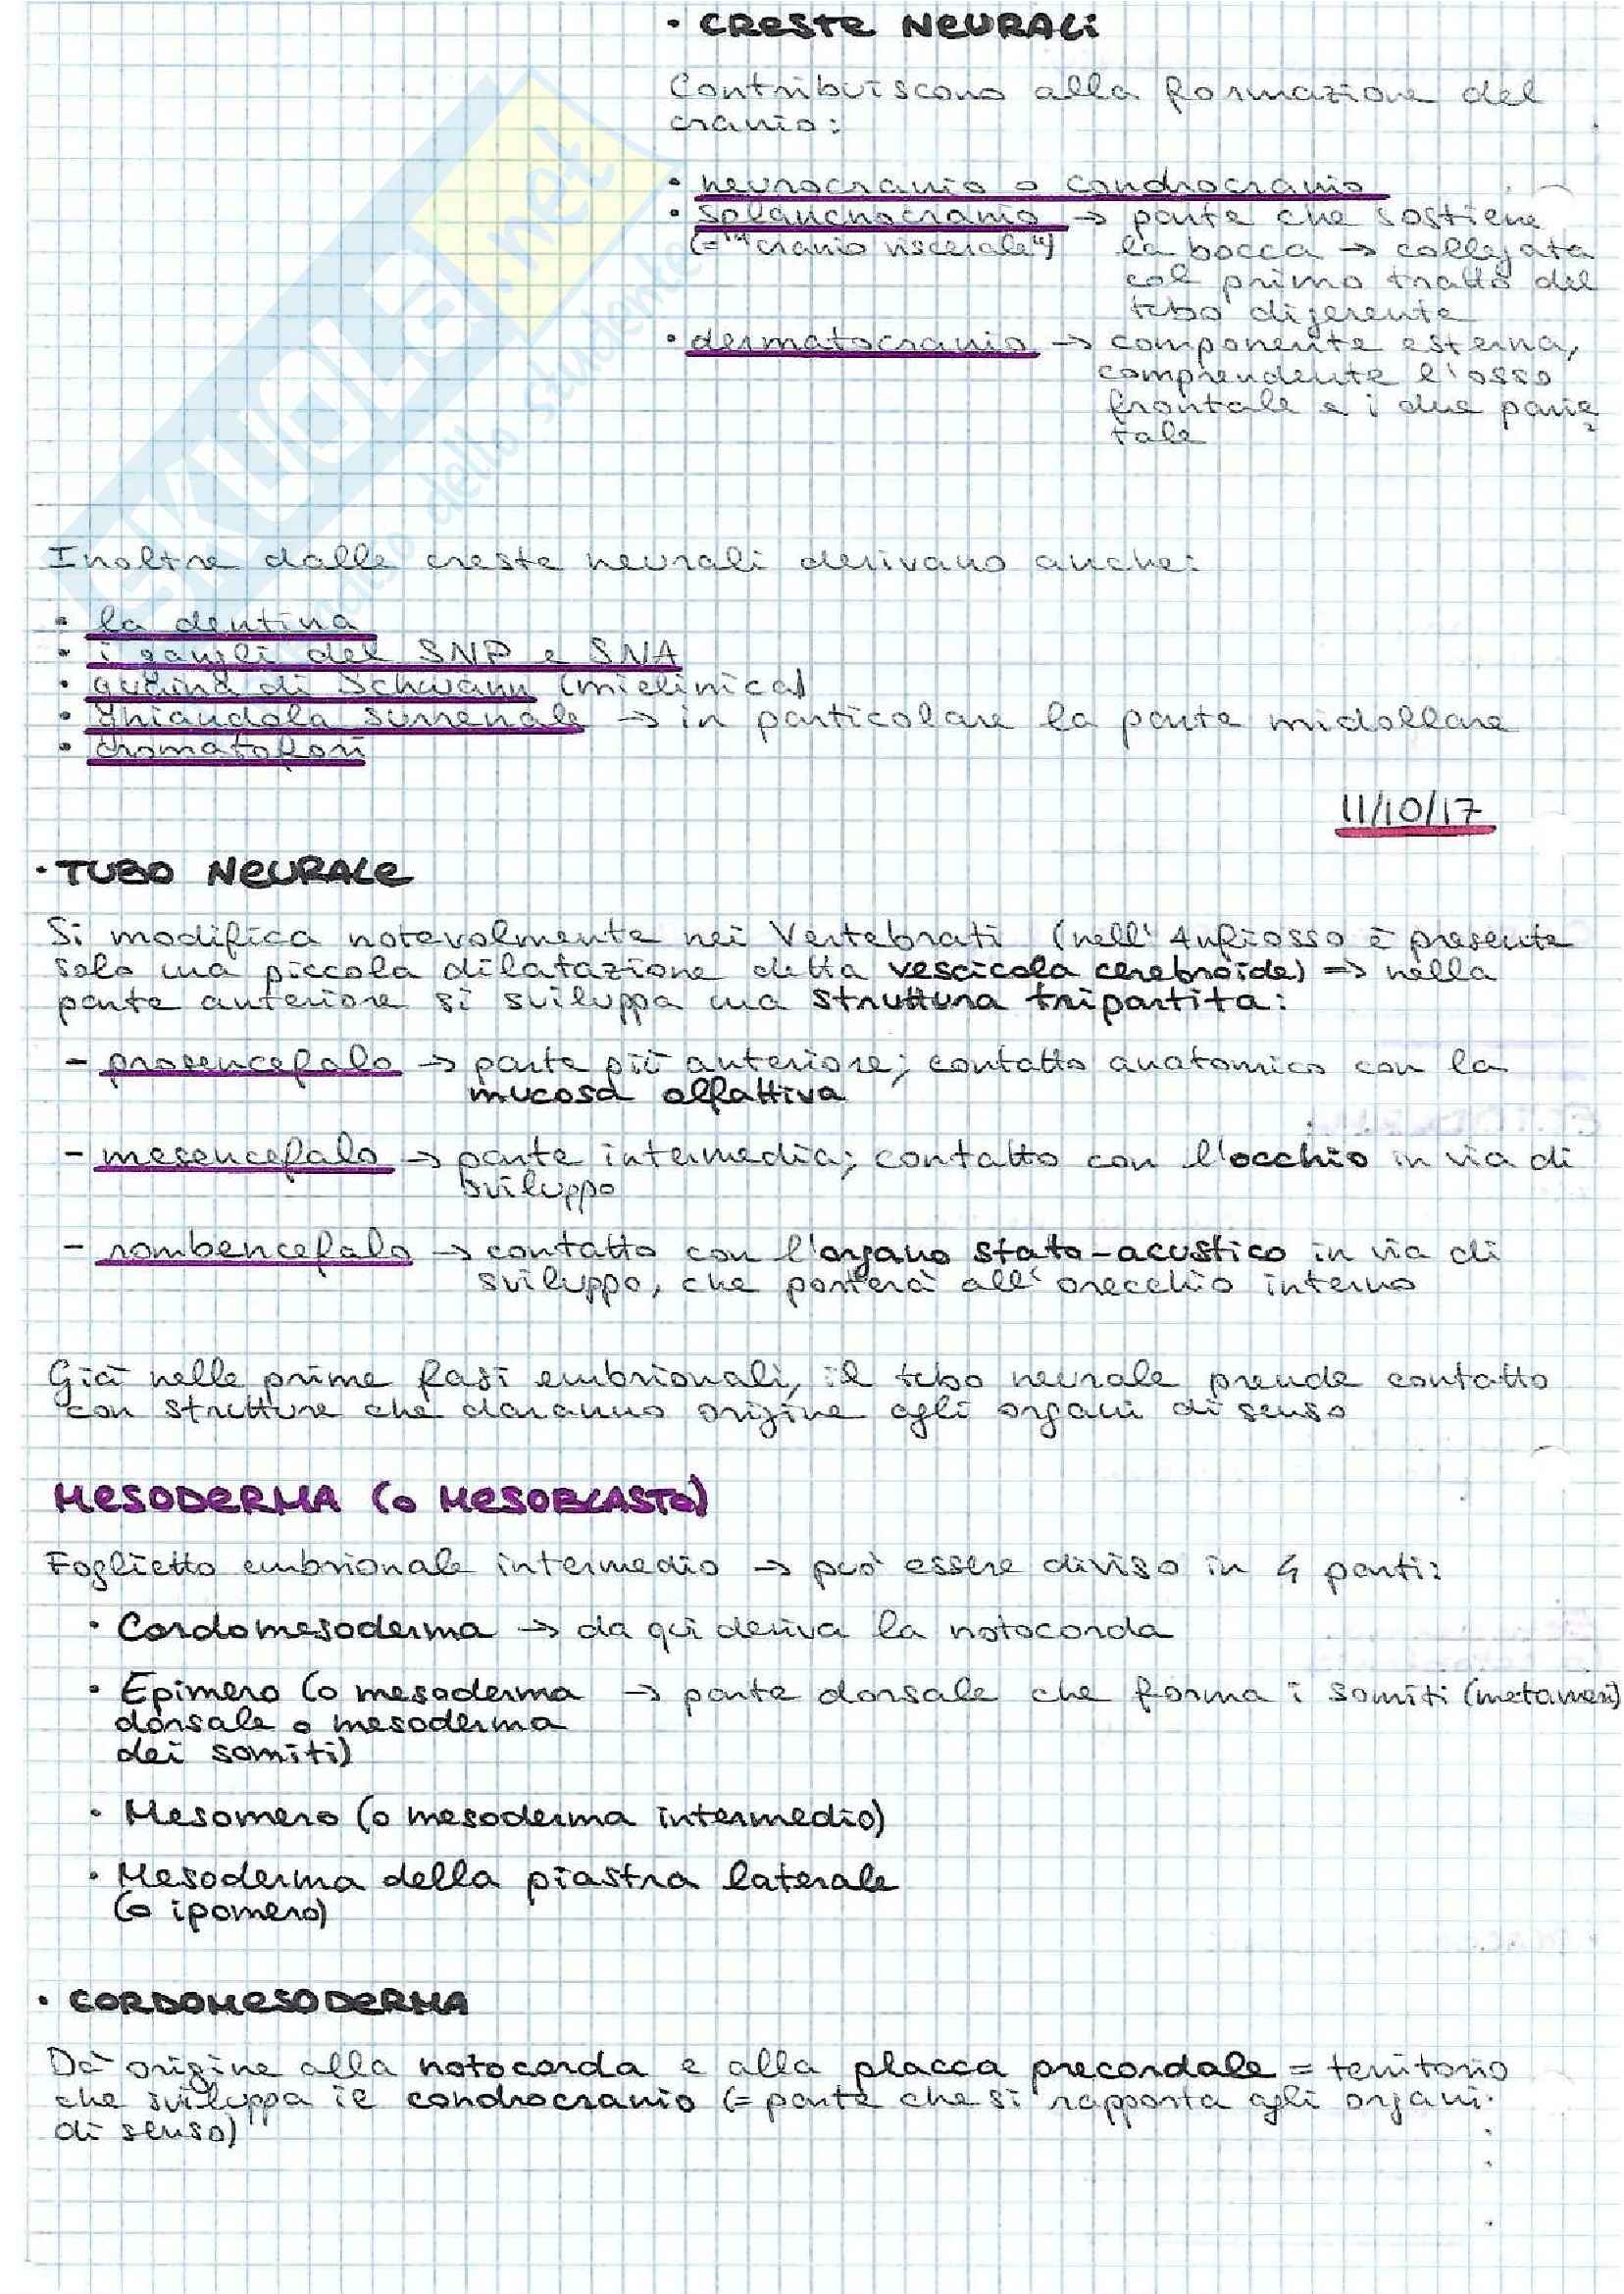 • CRESTE NEURALI
Contribuiscono alla formazione del
cranio:
• neurocranio o condrocranio
• splancnocranio → parte che sostiene
(= "cranio viscerale") la bocca → collegata
col primo tratto del
tubo digerente
• dermatocranio → componente esterna,
comprendente l'osso
frontale e i due parie
tale
SKUOLA.net
dello studente
Inoltre dalle creste neurali derivano anche:
• la dentina
• i gangli del SNP e SNA
• guaina di Schwann (mielinica)
• ghiandola surrenale → in particolare la parte midollare
• cromatofori
11/10/17
• TUBO NEURALE
Si modifica notevolmente nei Vertebrati (nell'Anfiosso è presente
solo una piccola dilatazione detta vescicola cerebroide) => nella
parte anteriore si sviluppa una struttura tripartita:
- prosencefalo → parte più anteriore; contatto anatomico con la
mucosa olfattiva
- mesencefalo → parte intermedia; contatto con l'occhio in via di
sviluppo
- rombencefalo → contatto con l'organo stato-acustico in via di
sviluppo, che porterà all'orecchio interno
Già nelle prime fasi embrionali, il tubo neurale prende contatto
con strutture che daranno origine agli organi di senso
MESODERMA (o MESOBLASTO)
Foglietto embrionale intermedio → può essere diviso in 4 parti:
• Cordomesoderma → da qui deriva la notocorda
• Epimero (o mesoderma → parte dorsale che forma i somiti (metameri)
dorsale o mesoderma
dei somiti)
• Mesomero (o mesoderma intermedio)
• Mesoderma della piastra laterale
(o ipomero)
• CORDOMESODERMA
Dà origine alla notocorda e alla placca precordale = territorio
che sviluppa il condrocranio (= parte che si rapporta agli organi
di senso)